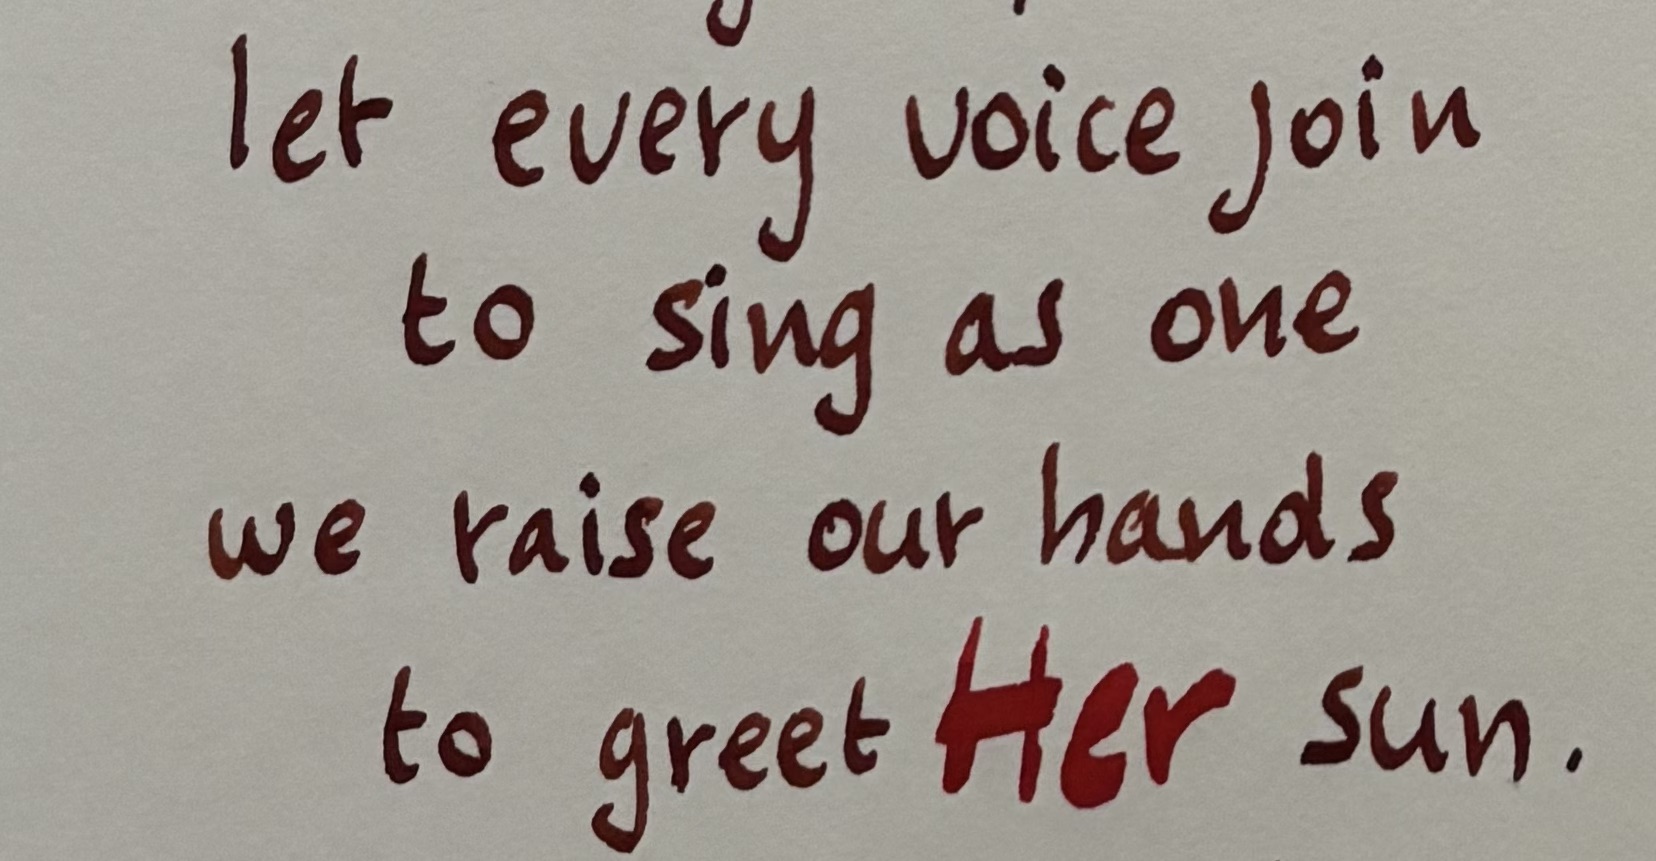 let every voice join
to sing as one
we raise our hands
to greet Her sun.